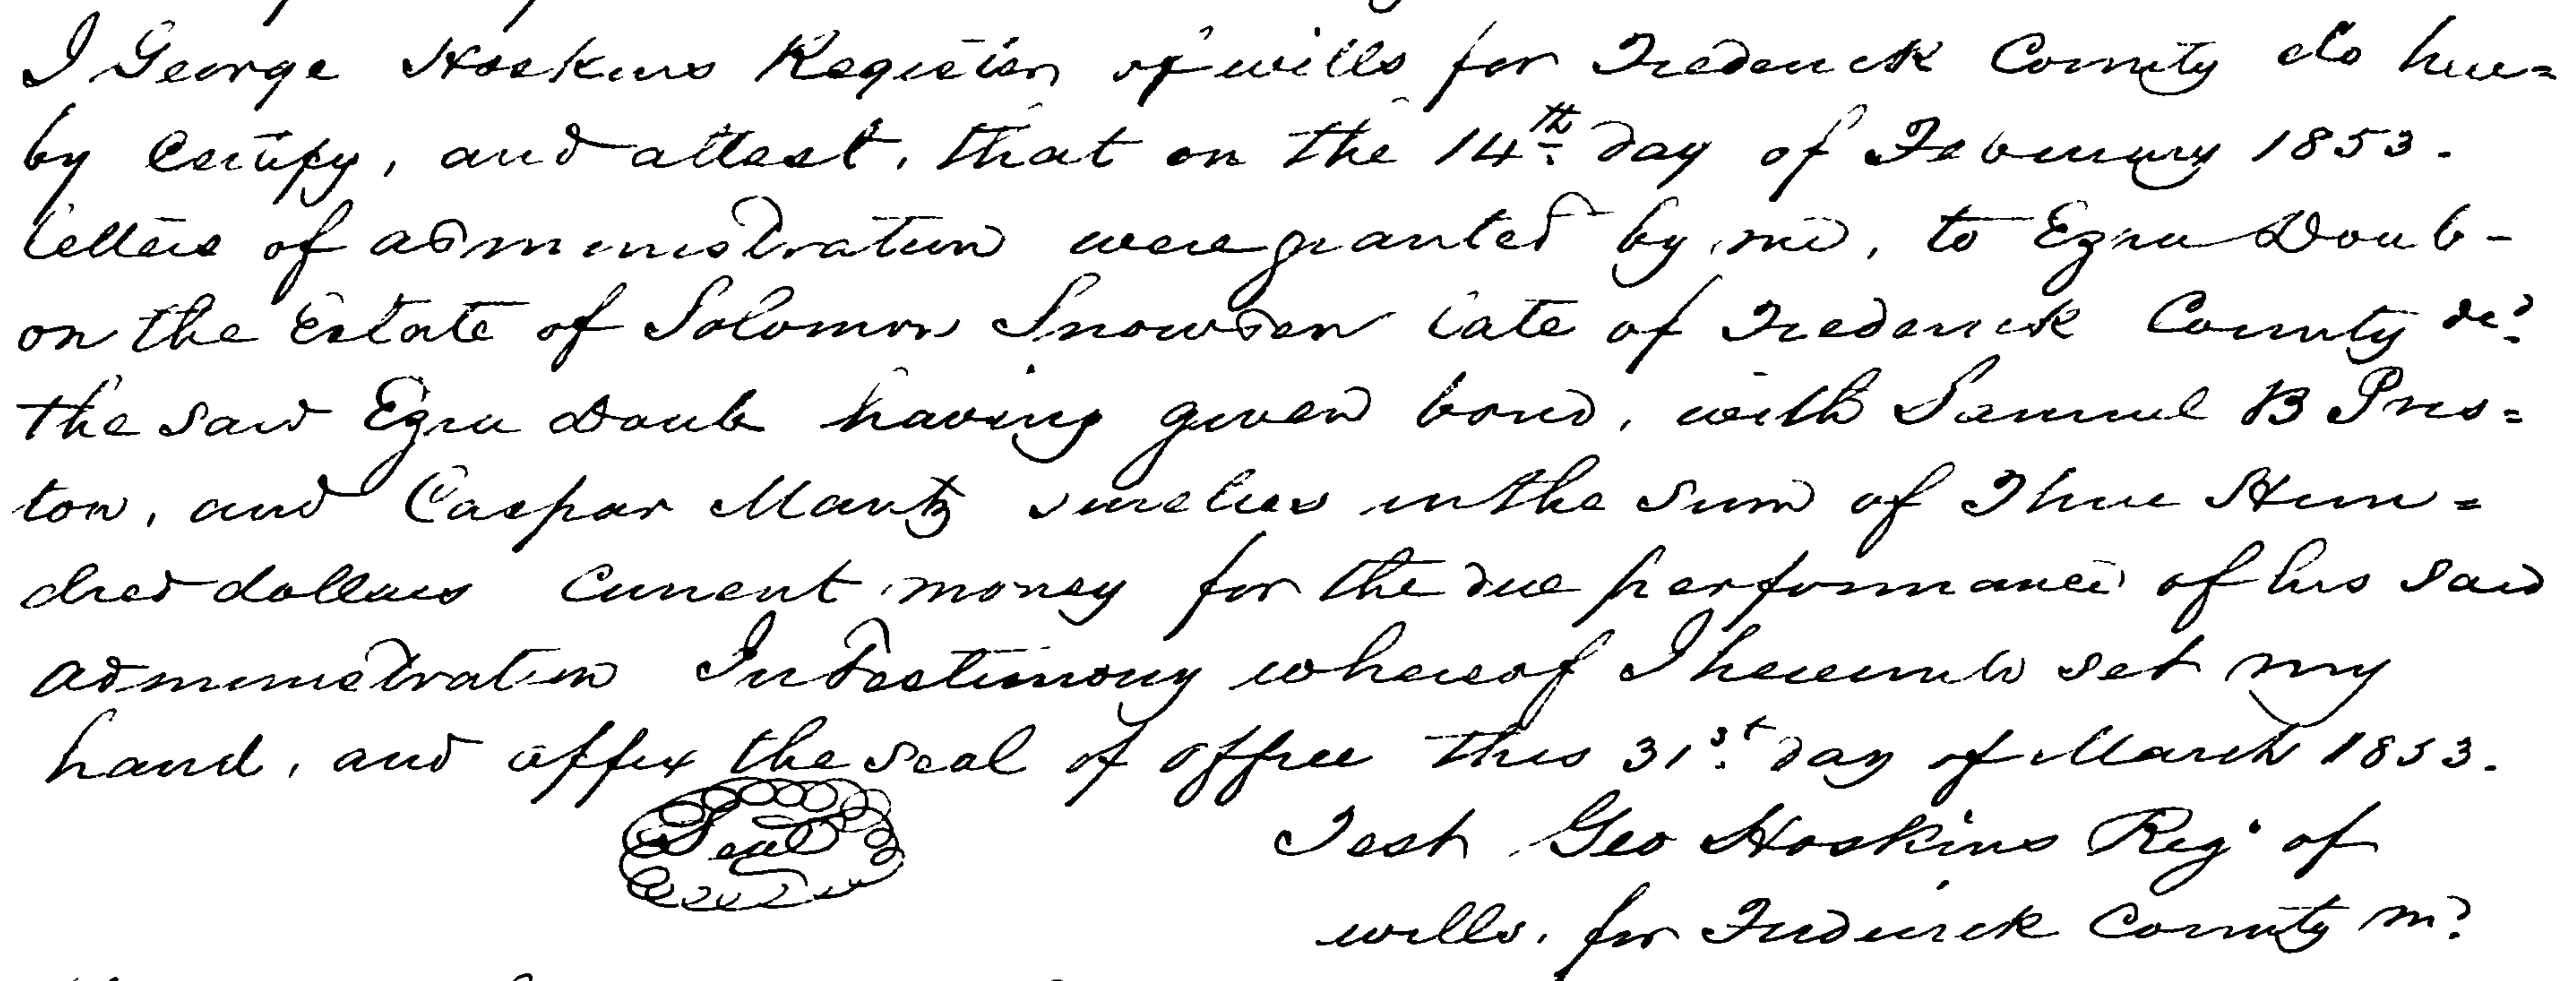 I George Hoskins Register of wills for Frederick County do here=
by Certify, and attest, that on the 14th day of February 1853.
letters of administration were granted by me, to Ezra Doub-
on the Estate of Solomon Snowden late of Frederick County decd.
the said Ezra Doub having given bond, with Samuel B Pres=
ton, and Caspar Mantz sureties in the sum of Three Hun=
dred dollars Current money for the due performance of his said
administration In Testimony whereof I hereunto set my
hand, and affix the seal of office this 31st day of March 1853.
Seal
Test Geo Hoskins Reg. of
wills, for Frederick County Md.